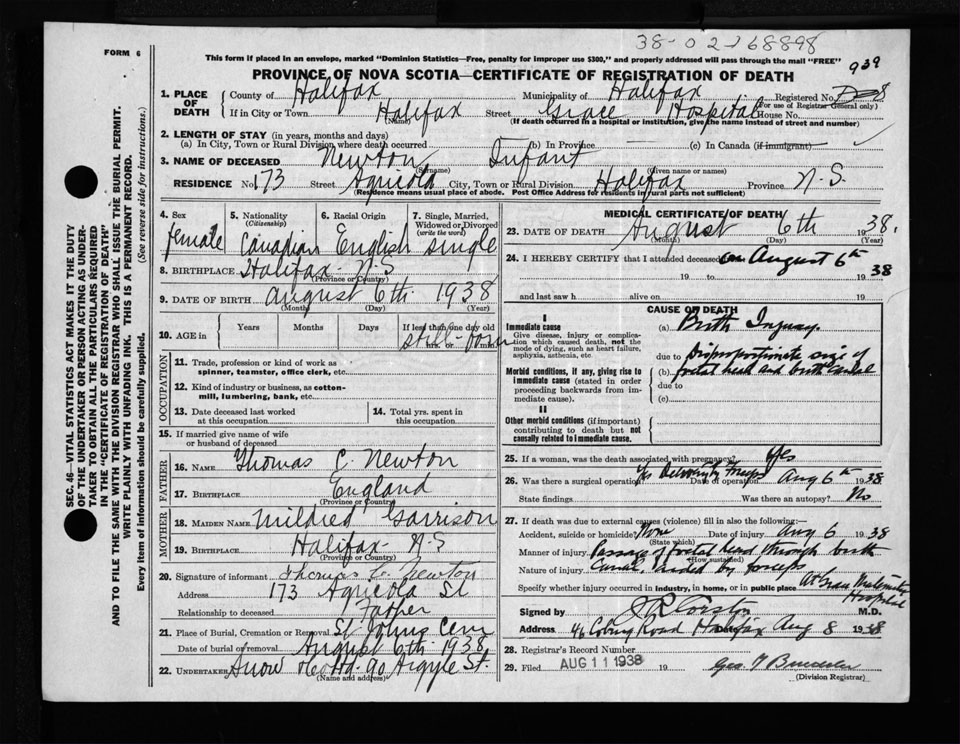 38-02-168898
FORM 6
This form if placed in an envelope, marked "Dominion Statistics—Free, penalty for improper use $300," and properly addressed will pass through the mail "FREE"
939
PROVINCE OF NOVA SCOTIA—CERTIFICATE OF REGISTRATION OF DEATH
1. PLACE OF DEATH County of Halifax Municipality of Halifax Registered No. 8
(For use of Registrar General only)
If in City or Town Halifax (Name) Street Grace Hospital House No.
(If death occurred in a hospital or institution, give the name instead of street and number)
2. LENGTH OF STAY (in years, months and days)
(a) In City, Town or Rural Division where death occurred (b) In Province (c) In Canada (if immigrant)
3. NAME OF DECEASED Newton Infant
(Surname) (Given name or names)
RESIDENCE No. 173 Street Agricola City, Town or Rural Division Halifax Province N.S.
(Residence means usual place of abode. Post Office Address for Residents in rural parts not sufficient)
4. Sex female
5. Nationality (Citizenship) Canadian
6. Racial Origin English
7. Single, Married, Widowed or Divorced (write the word) single
8. BIRTHPLACE Halifax - N S
(Province or Country)
9. DATE OF BIRTH August 6th 1938
(Month) (Day) (Year)
10. AGE in Years Months Days If less than one day old
still-born
OCCUPATION
11. Trade, profession or kind of work as
spinner, teamster, office clerk, etc.
12. Kind of industry or business, as cotton-
mill, lumbering, bank, etc.
13. Date deceased last worked
at this occupation
14. Total yrs. spent in
this occupation
15. If married give name of wife
or husband of deceased
FATHER
16. NAME Thomas C. Newton
17. BIRTHPLACE England
(Province or Country)
MOTHER
18. MAIDEN NAME Mildred Garrison
19. BIRTHPLACE Halifax - N.S
(Province or Country)
20. Signature of informant Thomas C. Newton
Address 173 Agricola St
Relationship to deceased Father
21. Place of Burial, Cremation or Removal St Johns Cem
Date of burial or removal August 6th 1938
22. UNDERTAKER Snow & Co Ltd - 90 Argyle St.
(Name and address)
MEDICAL CERTIFICATE OF DEATH
23. DATE OF DEATH August 6th 1938.
(Month) (Day) (Year)
24. I HEREBY CERTIFY that I attended deceased on August 6th 38
19 to 19
and last saw h alive on 19
CAUSE OF DEATH
I
Immediate cause (a) Birth Injury.
Give disease, injury or complication which caused death, not the mode of dying, such as heart failure, asphyxia, asthenia, etc.
due to Disproportionate size of
(b) foetal head and birth canal
Morbid conditions, if any, giving rise to immediate cause (stated in order proceeding backwards from immediate).
due to
(c)
II
Other morbid conditions (if important) contributing to death but not causally related to immediate cause.
25. If a woman, was the death associated with pregnancy? Yes
26. Was there a surgical operation? Yes Date of operation Aug 6th 1938
State findings Was there an autopsy? No
27. If death was due to external causes (violence) fill in also the following:—
Accident, suicide or homicide? None Date of injury Aug 6 1938
(State which)
Manner of injury Passage of foetal head through birth
(How sustained)
Nature of injury Canal, aided by forceps
Specify whether injury occurred in industry, in home, or in public place At Grace Maternity Hospital
Signed by M.D.
Address 46 Coburg Road Halifax Aug 8 1938
28. Registrar's Record Number
29. Filed AUG 11 1938 19
(Division Registrar)
SEC. 46—VITAL STATISTICS ACT MAKES IT THE DUTY
OF THE UNDERTAKER OR PERSON ACTING AS UNDER-
TAKER TO OBTAIN ALL THE PARTICULARS REQUIRED
IN THE "CERTIFICATE OF REGISTRATION OF DEATH"
AND TO FILE THE SAME WITH THE DIVISION REGISTRAR WHO SHALL ISSUE THE BURIAL PERMIT.
WRITE PLAINLY WITH UNFADING INK. THIS IS A PERMANENT RECORD.
Every item of information should be carefully supplied. (See reverse side for instructions.)